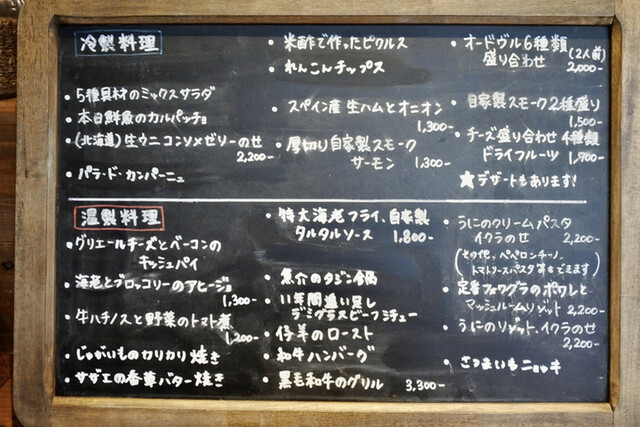 冷製料理
・5種具材のミックスサラダ
・本日鮮魚のカルパッチョ
・(北海道)生ウニコンソメゼリーのせ
2,200-
・パテ・ド・カンパーニュ
・米酢で作ったピクルス
・れんこんチップス
・スペイン産 生ハムとオニオン
1,300-
・厚切り自家製スモーク
サーモン 1,300-
・オードヴル6種類
盛り合わせ (2人前)
2,000-
・自家製スモーク2種盛り
1,500-
・チーズ盛り合わせ 4種類
ドライフルーツ 1,700-
★デザートもあります!
温製料理
・グリエールチーズとベーコンの
キッシュパイ
・海老とブロッコリーのアヒージョ
1,300-
・牛ハチノスと野菜のトマト煮
1,200-
・じゃがいものカリカリ焼き
・サザエの香草バター焼き
・特大海老フライ、自家製
タルタルソース 1,800-
・魚介のタジン鍋
・11年間追い足し
デミグラスビーフシチュー
・仔羊のロースト
・和牛ハンバーグ
・黒毛和牛のグリル 3,300-
・うにのクリームパスタ
イクラのせ 2,200-
(その他、ペペロンチーノ、
トマトソースパスタ等もできます)
・定番フォワグラのポワレと
マッシュルームリゾット 2,200-
・うにのリゾット、イクラのせ
2,200-
・さつまいもニョッキ